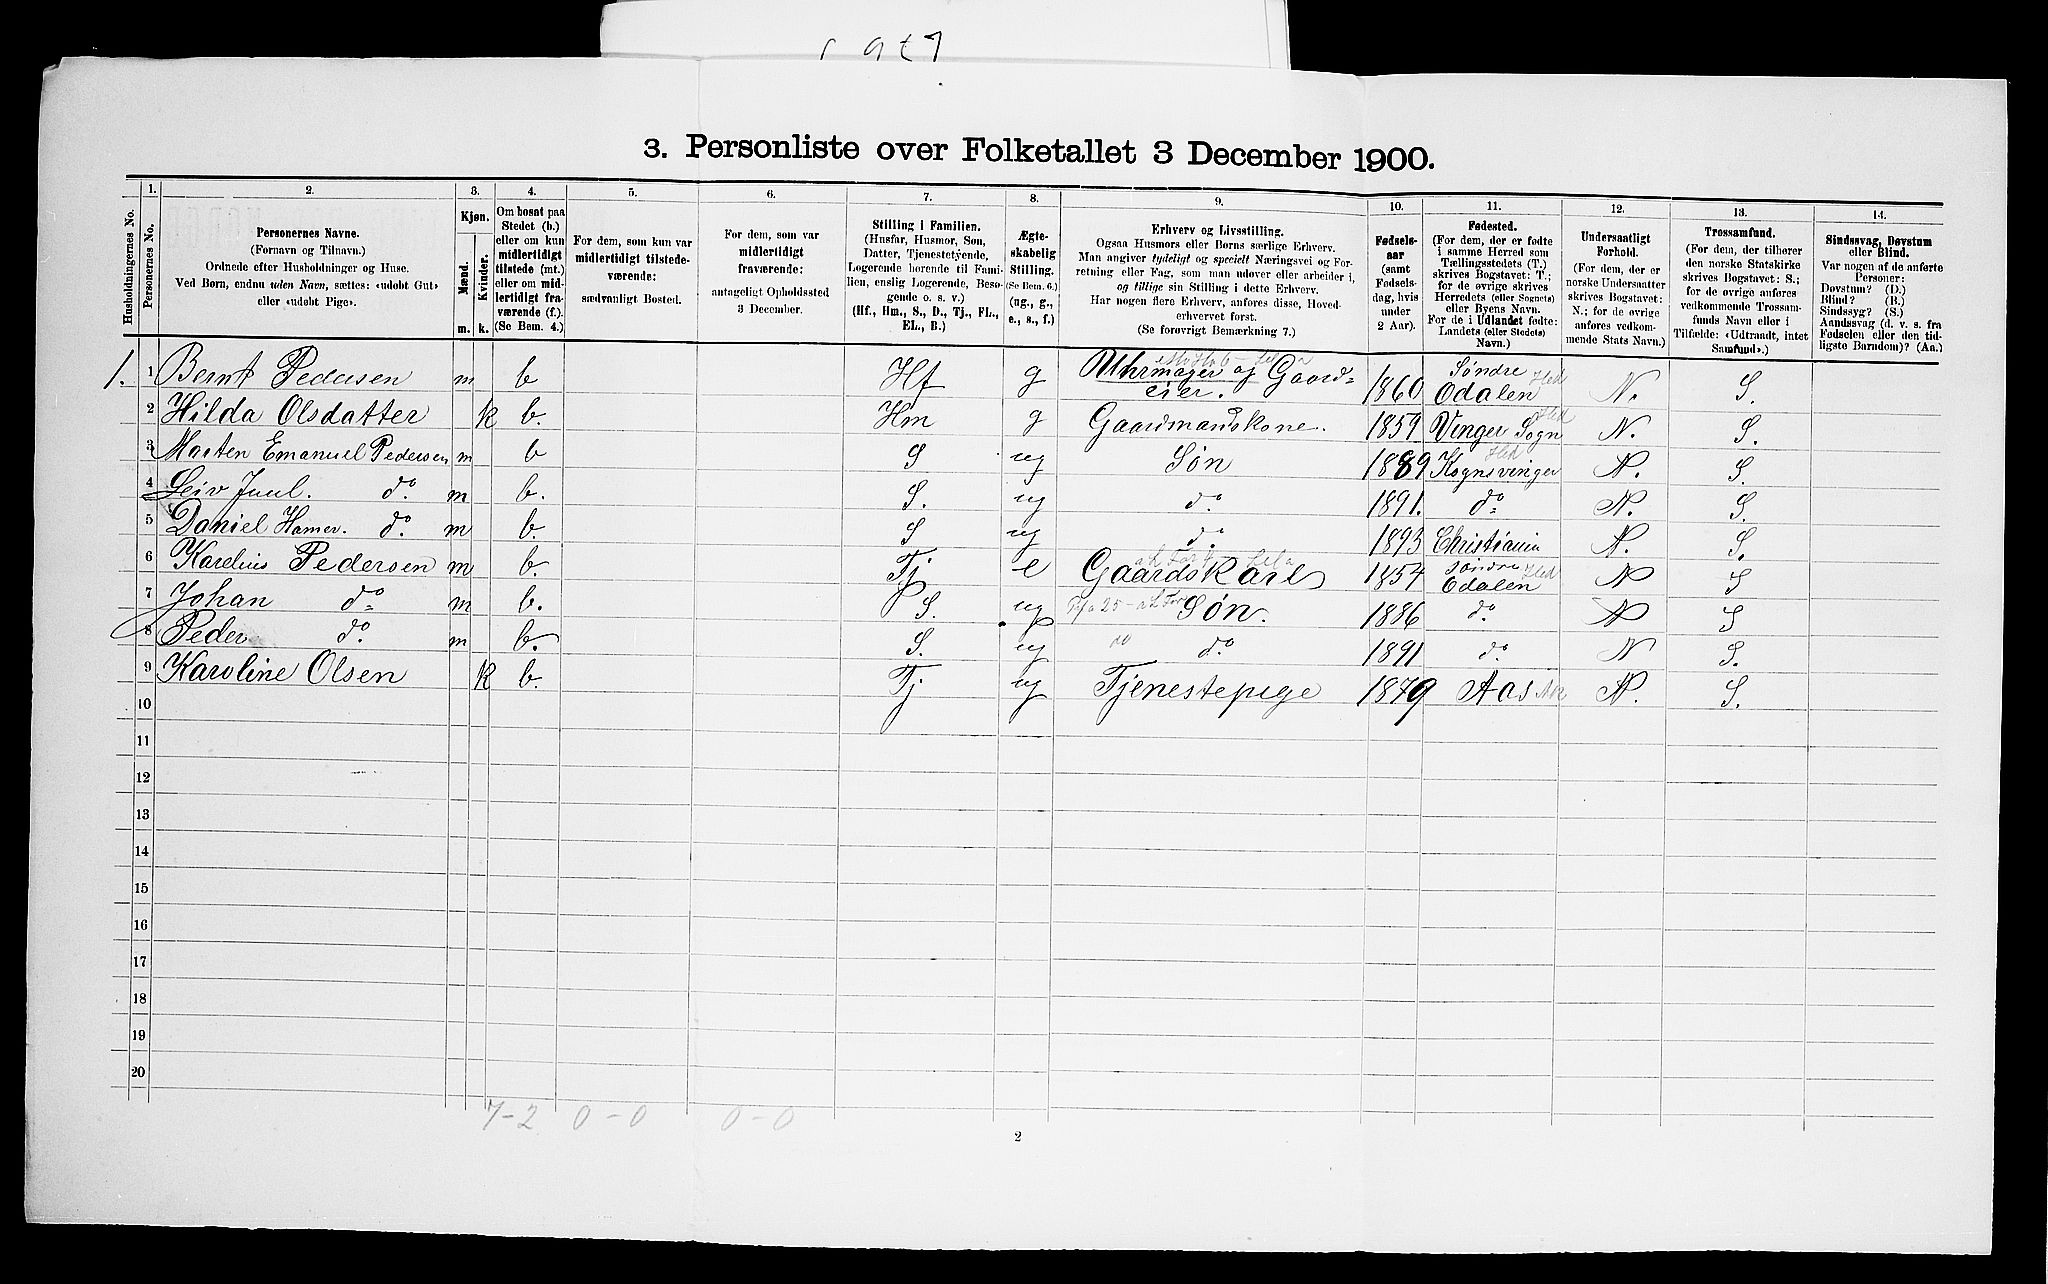 3. Personliste over Folketallet 3 December 1900.
Husholdningernes No.
1.
Personernes No.
2.
Personernes Navne.
(Fornavn og Tilnavn.)
Ordnede efter Husholdninger og Huse.
Ved Børn, endnu uden Navn, sættes: «udøbt Gut»
eller «udøbt Pige».
3.
Kjøn.
Mænd.
Kvinder.
m.
k.
4.
Om bosat paa
Stedet (b.)
eller om kun
midlertidigt
tilstede (mt.)
eller om mid-
lertidigt fra-
værende (f.).
(Se Bem. 4.)
5.
For dem, som kun var
midlertidigt tilstede-
værende:
sædvanligt Bosted.
6.
For dem, som var
midlertidigt
fraværende:
antageligt Opholdssted
3 December.
7.
Stilling i Familien.
(Husfar, Husmor, Søn,
Datter, Tjenestetyende,
Logerende hørende til Fami-
lien, enslig Logerende, Besø-
gende o. s. v.)
(Hf., Hm., S., D., Tj., FL.,
EL., B.)
8.
Ægte-
skabelig
Stilling.
(Se Bem. 6.)
(ug., g.,
e., s., f.)
9.
Erhverv og Livsstilling.
Ogsaa Husmors eller Børns særlige Erhverv.
Man angiver tydeligt og specielt Næringsvei og For-
retning eller Fag, som man udøver eller arbeider i,
og tillige sin Stilling i dette Erhverv.
Har nogen flere Erhverv, anføres disse, Hoved-
erhvervet først.
(Se forøvrigt Bemærkning 7.)
10.
Fødsels-
aar
(samt
Fødsels-
dag, hvis
under
2 Aar).
11.
Fødested.
(For dem, der er fødte
i samme Herred som
Tællingsstedets (T.)
skrives Bogstavet: T.;
for de øvrige skrives
Herredets (eller Sognets)
eller Byens Navn.
For de i Udlandet fødte:
Landets (eller Stedets)
Navn.)
12.
Undersaatligt
Forhold.
(For dem, der er
norske Undersaatter
skrives Bogstavet:
N.; for de øvrige
anføres vedkom-
mende Stats Navn.)
13.
Trossamfund.
(For dem, der tilhører
den norske Statskirke
skrives Bogstavet: S.;
for de øvrige anføres
vedkommende Trossam-
funds Navn eller i
Tilfælde: «Udtraadt, intet
Samfund».)
14.
Sindssvag, Døvstum
eller Blind.
Var nogen af de anførte
Personer:
Døvstum? (D.)
Blind? (B.)
Sindssyg? (S.)
Aandssvag (d. v. s. fra
Fødselen eller den tid-
ligste Barndom)? (Aa.)
1. 1 Bernt Pedersen m b Hf g Uhrmager og Gaard=eier. 1860 Søndre Odalen Hed N. S.
2 Hilda Olsdatter k b. Hm g Gaardmandskone. 1859 Vinger Sogn Hed N. S.
3 Marten Emanuel Pedersen m b S ug Søn 1889 Kognsvinger Hed N. S.
4 Leiv Juul. do. m b. S. ug do 1891. do N. S.
5 Daniel Hamer. do. m b. S ug do. 1893 Christiania N. S.
6 Karelius Pedersen m b. Tj e Gaardskarl 1854 Søndre Odalen Hed N S
7 Johan do m b. S. ug Søn. 1886 do. N S
8 Peder do. m b. S. ug do. 1891 do. N S.
9 Karoline Olsen k b. Tj ug Tjenestepige 1879 Aas Ak N. S.
10
11
12
13
14
15
16
17
18
19
20
7-2 0-0 0-0
2